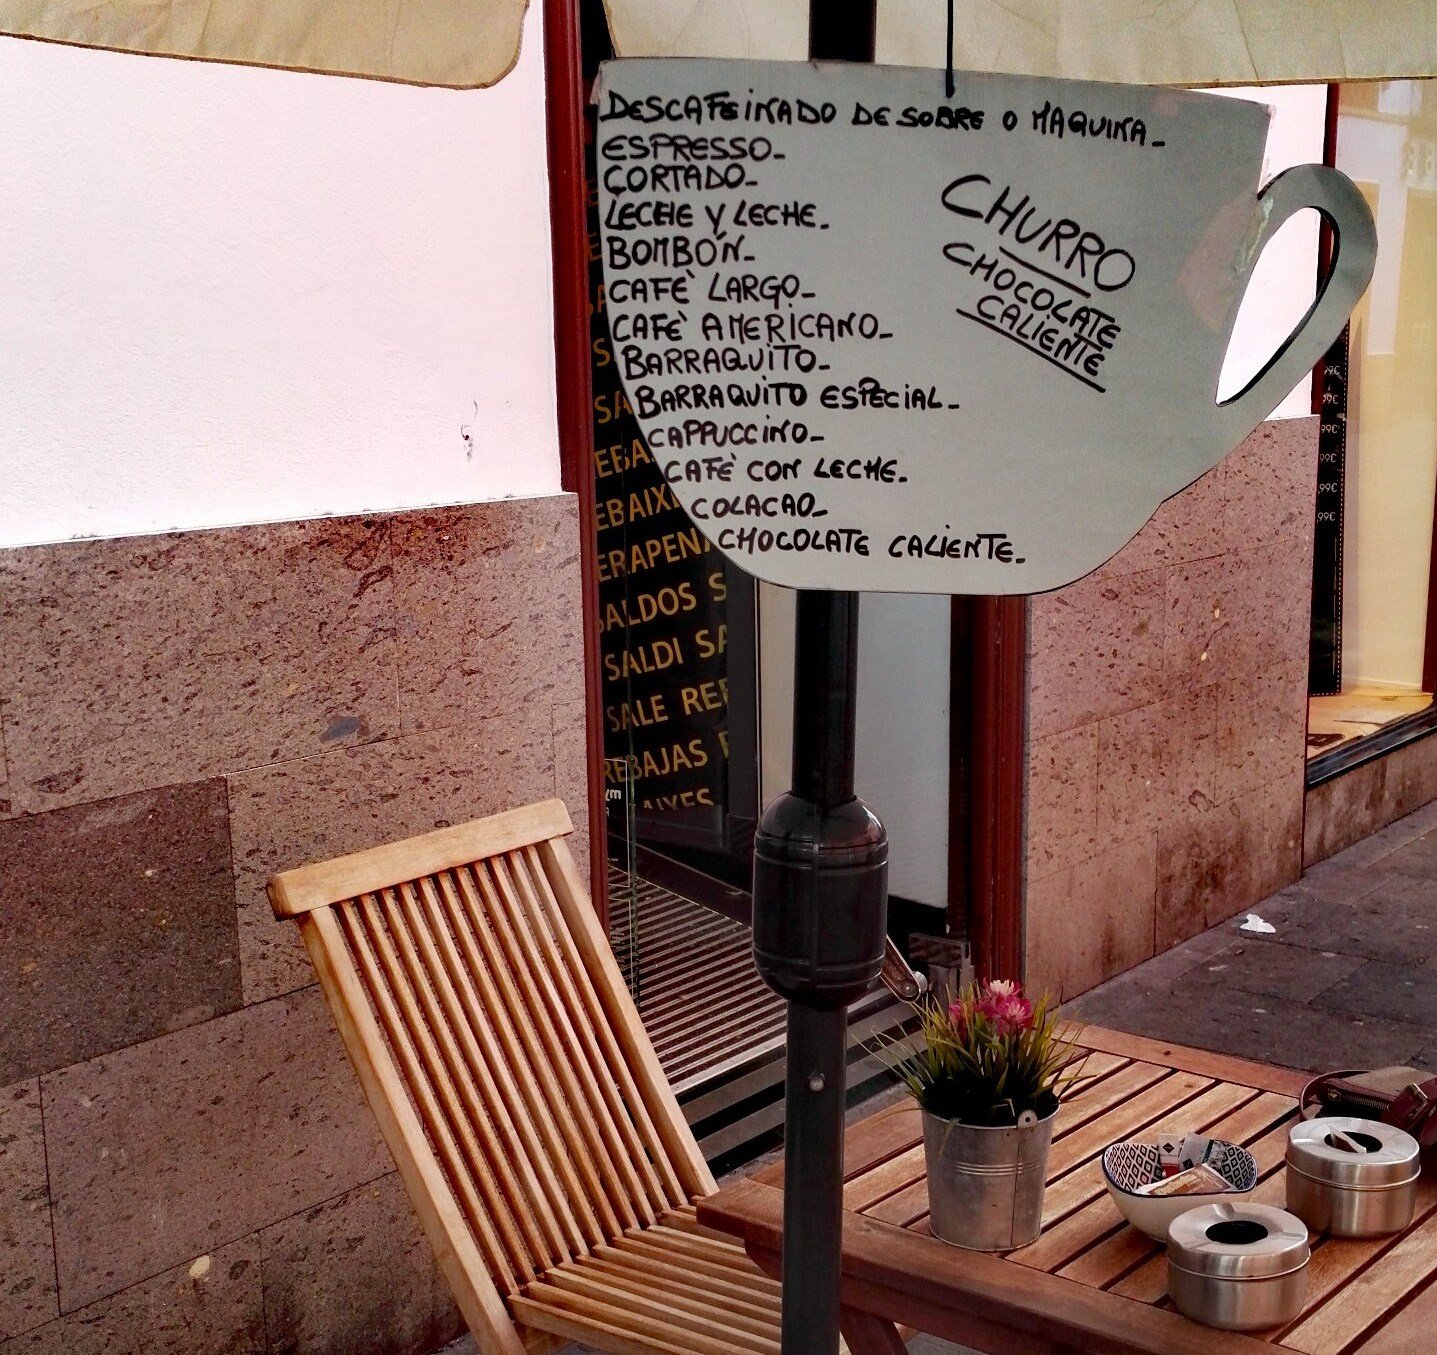 DESCAFEINADO DE SOBRE O MAQUINA_
ESPRESSO_
CORTADO_
LECHE Y LECHE_
BOMBÓN_
CAFÈ LARGO_
CAFÈ AMERICANO_
BARRAQUITO_
BARRAQUITO ESPECIAL_
CAPPUCCINO_
CAFÈ CON LECHE.
COLACAO_
CHOCOLATE CALIENTE_
CHURRO
CHOCOLATE
CALIENTE
SA
EBA
EBAIX
ERAPENA
SALDOS S
SALDI SA
SALE REB
REBAJAS
AIXES
99€
99€
99€
99€
,99€
,99€